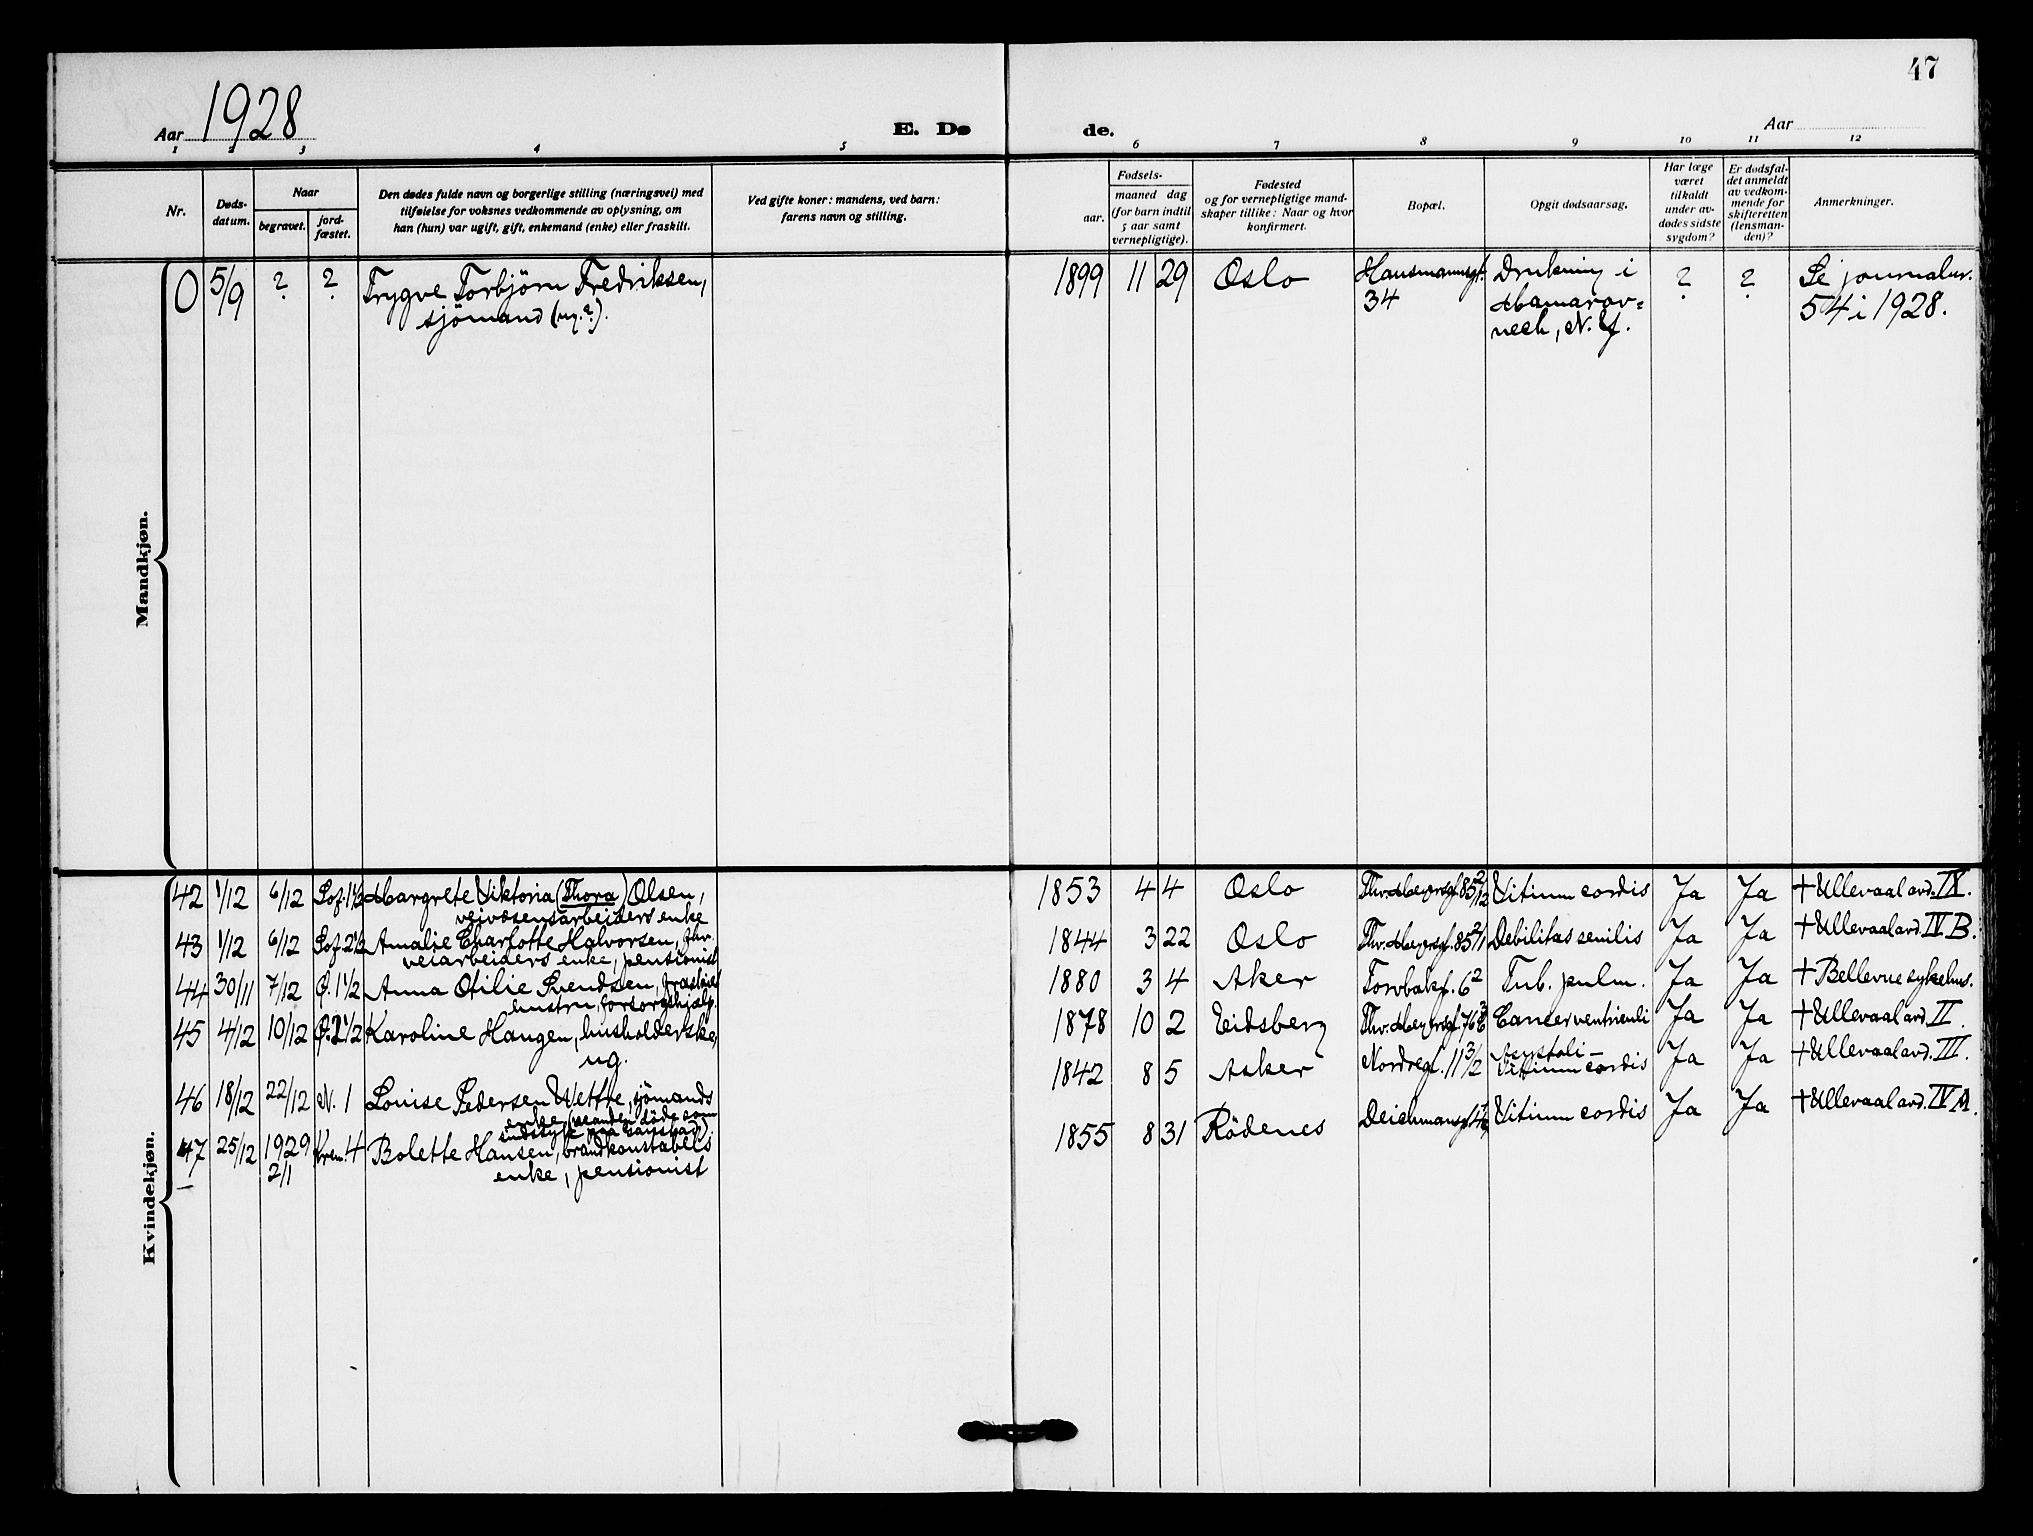 47
Aar 1928
E. Dø
de.
Aar
1 2 3 4 5 6 7 8 9 10 11 12
Nr.
Døds-
datum.
Naar
begravet.
jord-
fæstet.
Den dødes fulde navn og borgerlige stilling (næringsvei) med
tilføielse for voksnes vedkommende av oplysning, om
han (hun) var ugift, gift, enkemand (enke) eller fraskilt.
Ved gifte koner: mandens, ved barn:
farens navn og stilling.
Fødsels-
aar.
maaned dag
(for barn indtil
5 aar samt
vernepligtige).
Fødested
og for vernepligtige mand-
skaper tillike: Naar og hvor
konfirmert.
Bopæl.
Opgit dødsaarsag.
Har læge
været
tilkaldt
under av-
dødes sidste
sygdom?
Er dødsfal-
det anmeldt
av vedkom-
mende for
skifteretten
(lensman-
den)?
Anmerkninger.
Mandkjøn.
0 5/9 ? ? Trygve Torbjörn Fredriksen, 1899 11 29 Oslo Hausmannsgt. Drukning i ? ? Se journalnr.
sjömand (ug.?). 34 Mamarov- 54 i 1928.
neck, N.Y.
Kvindekjøn.
42 1/12 6/12 Sof. 1 1/2 Margrete Viktoria (Thora) Olsen, 1853 4 4 Oslo Thv. Meyersgt. 85 2/12 Vitium cordis Ja Ja + Ullevaal avd. IX.
veivæsensarbeiders enke
43 1/12 6/12 Sof. 2 1/2 Amalie Charlotte Halvorsen, 1844 3 22 Oslo Thv. Meyersgt. 85 2/1 Debilitas senilis Ja Ja + Ullevaal avd. IV B.
veiarbeiders enke, pensionist
44 30/11 7/12 Ø. 1 1/2 Anna Otilie Svendsen, 1880 3 4 Aker Torvbakgt. 6 2 Tub. pulm. Ja Ja + Bellevue sykehus.
hustru, forsorgshjælp.
45 4/12 10/12 Ø. 2 1/2 Karoline Haugen, husholderske, 1878 10 2 Eidsberg Thv. Meyersgt. 76 Cancer ventriculi Ja Ja + Ullevaal avd. II.
ug.
46 18/12 22/12 N. 1 Louise Pedersen Wette, sjömands 1842 8 5 Asker Nordregt. 11 3/2 Vitium cordis Ja Ja + Ullevaal avd. III.
enke
47 25/12 1929 Krem. 4 Bolette Hansen, brandkonstabels 1855 8 31 Rödenes Deichmansgt. Vitium cordis Ja Ja + Ullevaal avd. IV A.
2/1 enke, pensionist